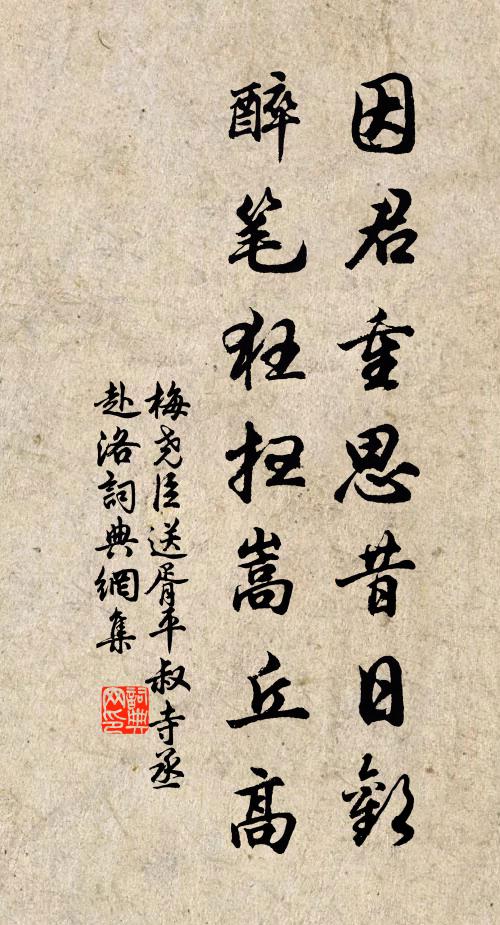 因君重思昔日歡
醉笔狂扫嵩丘高
梅尧臣送胥平叔寺丞
赴洛詞典網集
詞典
网印